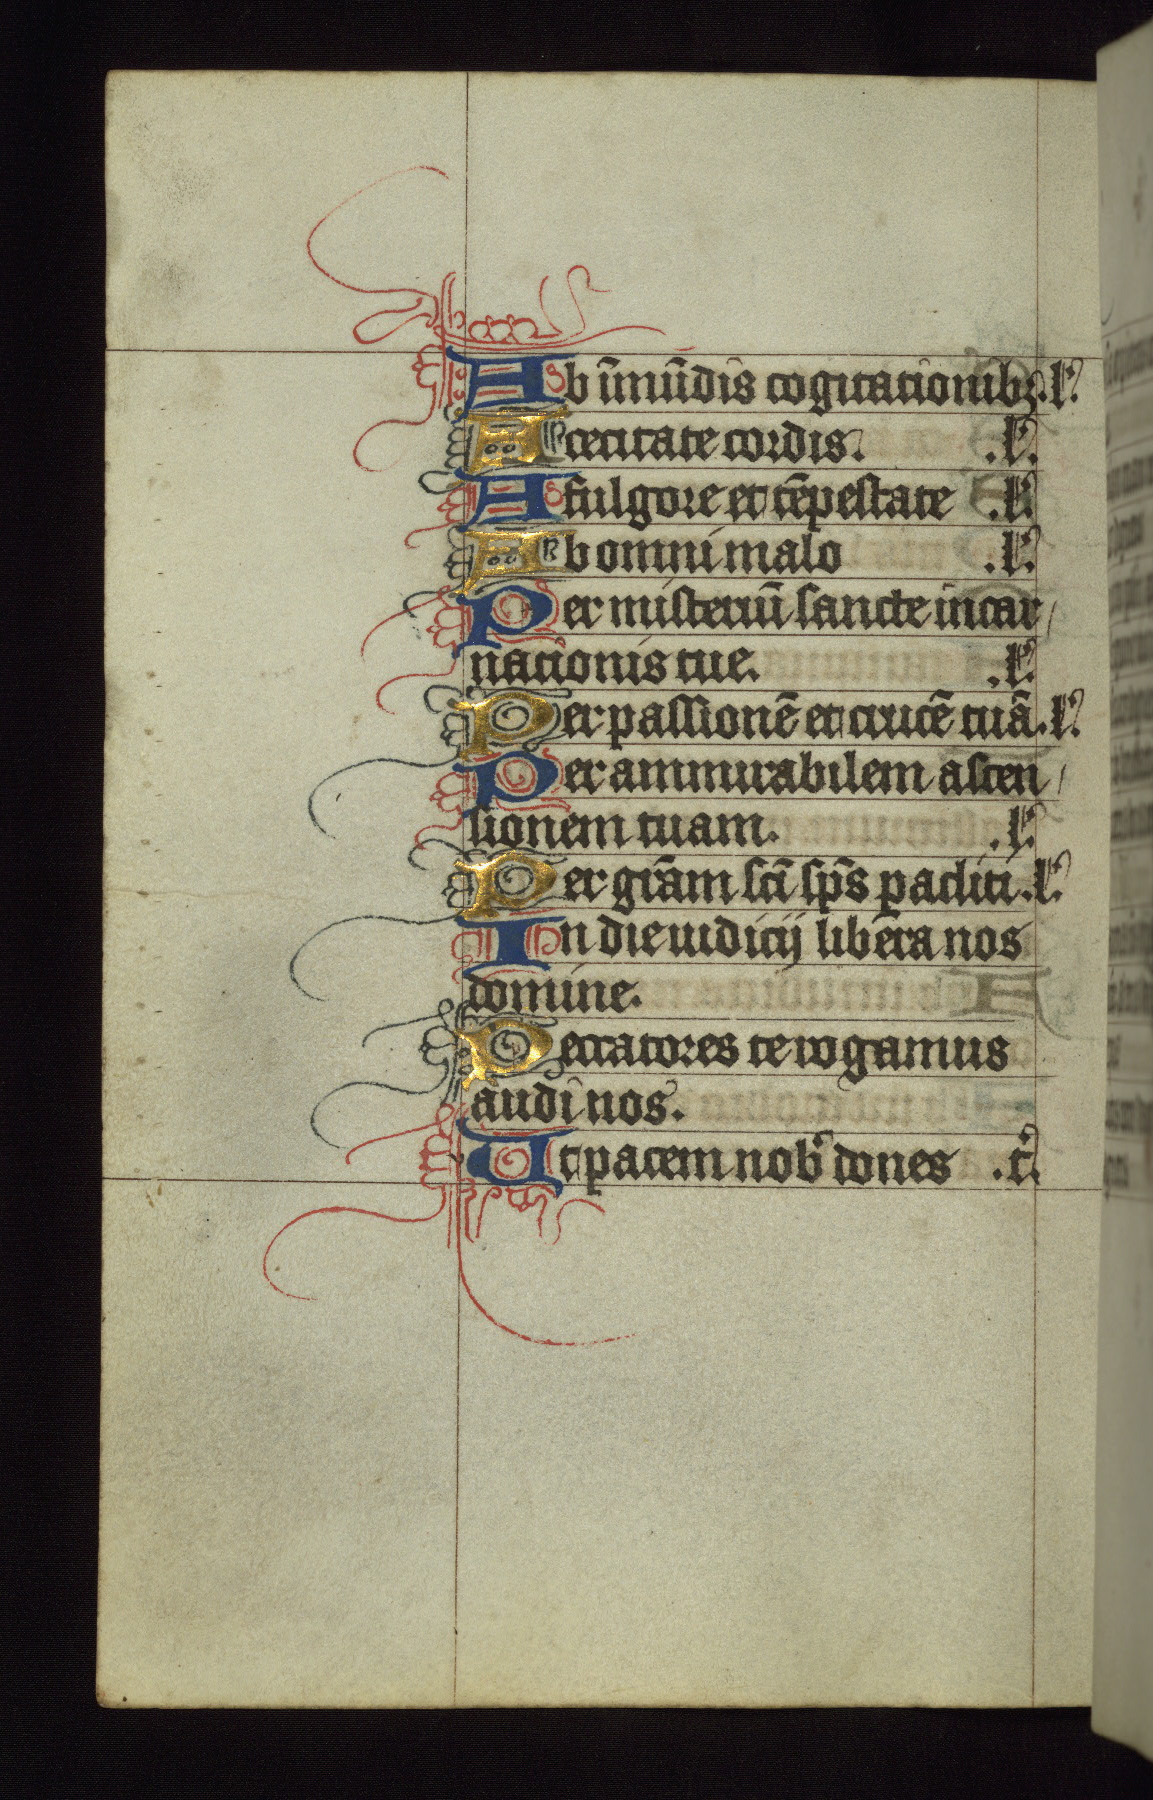 Ab īmūdis cogitationibꝫ. lꝰ.
A cecitate cordis. .lꝰ.
A fulgore et tēpestate .lꝰ.
Ab omni malo .lꝰ.
Per misteriū sancte incar/
nationis tue. .lꝰ.
Per passionē et crucē tuā. lꝰ.
Per ammirabilem ascen/
sionem tuam. .lꝰ.
Per grām scī sp̄s paclīti. lꝰ.
In die iudicij libera nos
domine.
Peccatores te rogamus
audi nos.
Ut pacem nobꝰ dones .tꝰ.